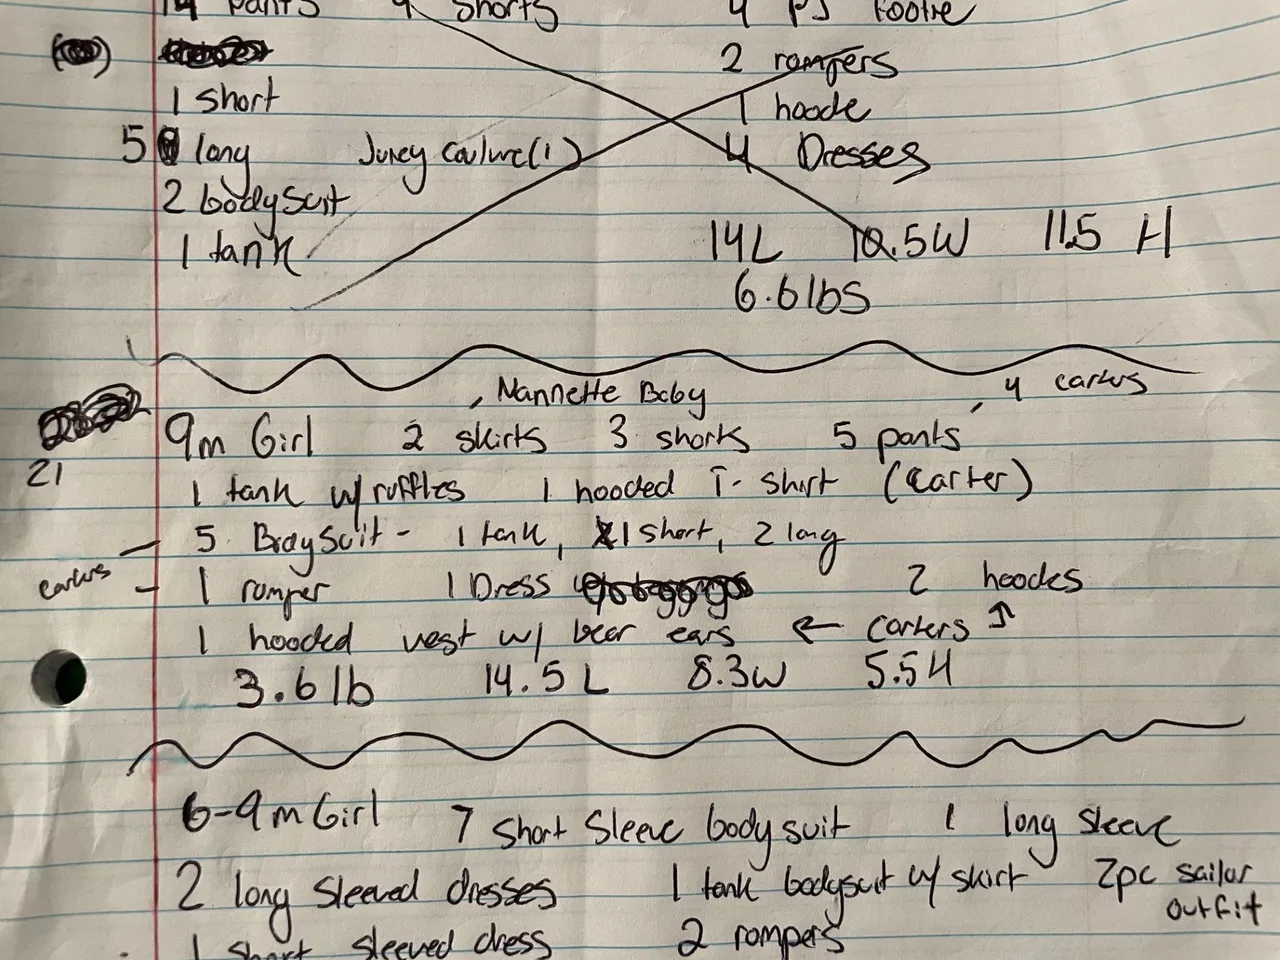 14 pants 4 shorts 4 PJ footie
2 rompers
1 short 1 hoode
5 long Juicy Couture(1) 4 Dresses
2 bodysuit
1 tank 14L 10.5W 11.5 H
6.6lbs
Nannette Baby 4 carters
9m Girl 2 skirts 3 shorts 5 pants
21
1 tank w/ ruffles 1 hooded T-shirt (Carter)
5 Bodysuit - 1 tank, 1 short, 2 long
carters 1 romper 1 Dress 2 hoodes
1 hooded vest w/ bear ears ← carters ↑
3.6lb 14.5L 8.3W 5.5H
6-9m Girl 7 short sleeve bodysuit 1 long sleeve
2 long sleeved dresses 1 tank bodysuit w/ skirt 2pc sailor
outfit
1 short sleeved dress 2 rompers